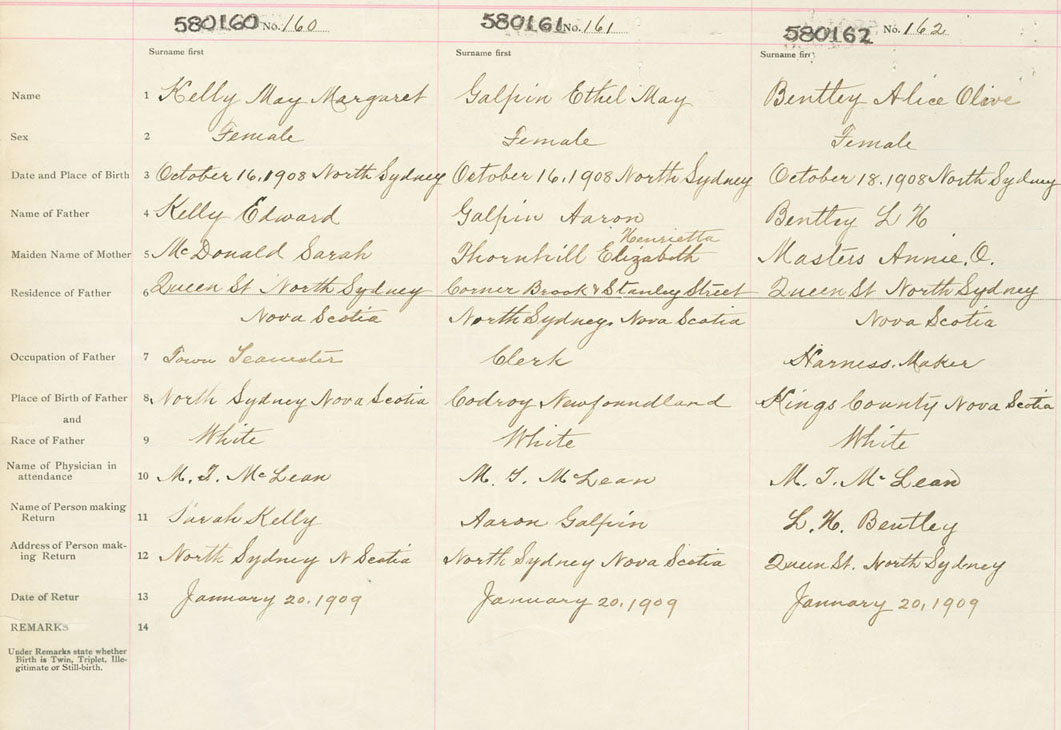 580160 No. 160 580161 No. 161 580162 No. 162
Surname first Surname first Surname first
Name 1 Kelly May Margaret Galpin Ethel May Bentley Alice Olive
Sex 2 Female Female Female
Date and Place of Birth 3 October 16, 1908 North Sydney October 16, 1908 North Sydney October 18, 1908 North Sydney
Name of Father 4 Kelly Edward Galpin Aaron Bentley L H
Henrietta
Maiden Name of Mother 5 McDonald Sarah Thornhill Elizabeth Masters Annie. O.
Residence of Father 6 Queen St North Sydney Corner Brook & Stanley Street Queen St North Sydney
Nova Scotia North Sydney, Nova Scotia Nova Scotia
Occupation of Father 7 Town Teamster Clerk Harness. Maker
Place of Birth of Father 8 North Sydney Nova Scotia Codroy Newfoundland Kings County Nova Scotia
and
Race of Father 9 White White White
Name of Physician in
attendance 10 M. T. McLean M. T. McLean M. T. McLean
Name of Person making
Return 11 Sarah Kelly Aaron Galpin L. H. Bentley
Address of Person mak-
ing Return 12 North Sydney N Scotia North Sydney Nova Scotia Queen St. North Sydney
Date of Retur 13 January 20, 1909 January 20, 1909 January 20, 1909
REMARKS 14
Under Remarks state whether
Birth is Twin, Triplet, Ille-
gitimate or Still-birth.